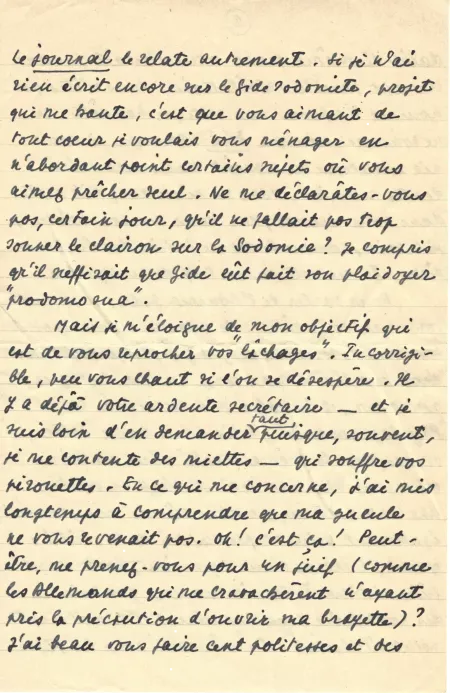 Le journal le relate autrement. Si je n'ai
rien écrit encore sur le Gide sodomite, projet
qui me hante, c'est que vous aimant de
tout coeur je voulais vous ménager en
n'abordant point certains sujets où vous
aimez prêcher seul. Ne me déclarâtes-vous
pas, certain jour, qu'il ne fallait pas trop
sonner le clairon sur la Sodomie? Je compris
qu'il suffisait que Gide eût fait son plaidoyer
"prodomo sua".
Mais je m'éloigne de mon objectif qui
est de vous reprocher vos "lâchages". Incorrigi-
ble, peu vous chaut si l'on se désespère. Il
y a déjà votre ardente secrétaire — et je
suis loin d'en demander tant puisque, souvent,
je me contente des miettes — qui souffre vos
pirouettes. En ce qui me concerne, j'ai mis
longtemps à comprendre que ma gueule
ne vous revenait pas. Oh! c'est ça! Peut-
être, me prenez-vous pour un juif (comme
les Allemands qui me cravachèrent n'ayant
pris la précaution d'ouvrir ma braguette)?
J'ai beau vous faire cent politesses et des